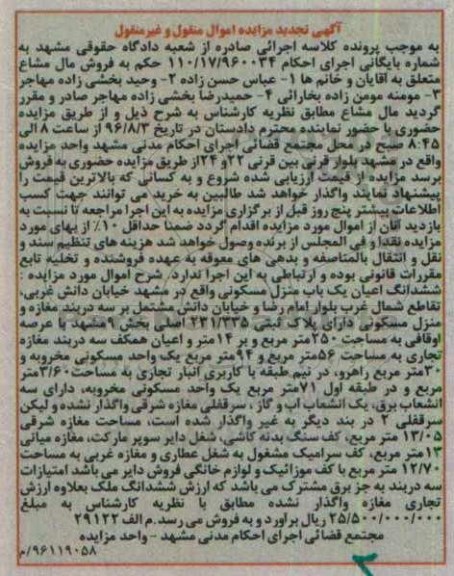 آگهی تجدید مزایده اموال منقول و غیرمنقول
به موجب پرونده کلاسه اجرائی صادره از شعبه دادگاه حقوقی مشهد به
شماره بایگانی اجرای احکام ۱۱۰/۱۷/۹۶۰۰۳۴ حکم به فروش مال مشاع
متعلق به آقایان و خانم ها ۱- عباس حسن زاده ۲- وحید بخشی زاده مهاجر
۳- مومنه مومن زاده بخارائی ۴- حمیدرضا بخشی زاده مهاجر صادر و مقرر
گردید مال مشاع مطابق نظریه کارشناس به شرح ذیل و از طریق مزایده
حضوری با حضور نماینده محترم دادستان در تاریخ ۹۶/۸/۳ از ساعت ۸ الی
۸:۴۵ صبح در محل مجتمع قضائی اجرای احکام مدنی مشهد واحد مزایده
واقع در مشهد بلوار قرنی بین قرنی ۲۲و ۲۴از طریق مزایده حضوری به فروش
برسد مزایده از قیمت ارزیابی شده شروع و به کسانی که بالاترین قیمت را
پیشنهاد نمایند واگذار خواهد شد طالبین به خرید می توانند جهت کسب
اطلاعات بیشتر پنج روز قبل از برگزاری مزایده به این اجرا مراجعه تا نسبت به
بازدید آنان از اموال مورد مزایده اقدام گردد ضمنا حداقل ۱۰٪ از بهای مورد
مزایده نقدا و فی المجلس از برنده وصول خواهد شد هزینه های تنظیم سند و
نقل و انتقال بالمناصفه و بدهی های معوقه به عهده فروشنده و تخلیه تابع
مقررات قانونی بوده و ارتباطی به این اجرا ندارد. شرح اموال مورد مزایده :
ششدانگ اعیان یک باب منزل مسکونی واقع در مشهد خیابان دانش غربی،
تقاطع شمال غرب بلوار امام رضا و خیابان دانش مشتمل بر سه دربند مغازه و
منزل مسکونی دارای پلاک ثبتی ۲۳۱/۳۳۵ اصلی بخش ۹مشهد با عرصه
اوقافی به مساحت ۲۵۰متر مربع و بر ۱۴متر و اعیان همکف سه دربند مغازه
تجاری به مساحت ۵۶متر مربع و ۹۴متر مربع یک واحد مسکونی مخروبه و
۳۰متر مربع راهرو، در نیم طبقه با کاربری انبار تجاری به مساحت۳/۶۰متر
مربع و در طبقه اول ۷۱متر مربع یک واحد مسکونی مخروبه، دارای سه
انشعاب برق، یک انشعاب آب و گاز ، سرقفلی مغازه شرقی واگذار نشده و لیکن
سرقفلی ۲ در بند دیگر به غیر واگذار شده است، مساحت مغازه شرقی
۱۳/۰۵ متر مربع، کف سنگ بدنه کاشی، شغل دایر سوپر مارکت، مغازه میانی
۱۳متر مربع، کف سرامیک مشغول به شغل عطاری و مغازه غربی به مساحت
۱۲/۷۰ متر مربع با کف موزائیک و لوازم خانگی فروش دایر می باشد امتیازات
سه دربند به جز برق مشترک می باشد که ارزش ششدانگ ملک بعلاوه ارزش
تجاری مغازه واگذار نشده مطابق با نظریه کارشناس به مبلغ
۲۵/۵۰۰/۰۰۰/۰۰۰ ریال برآورد و به فروش می رسد.م الف ۲۹۱۲۲
مجتمع قضائی اجرای احکام مدنی مشهد - واحد مزایده
۹۶۱۱۹۰۵۸/م